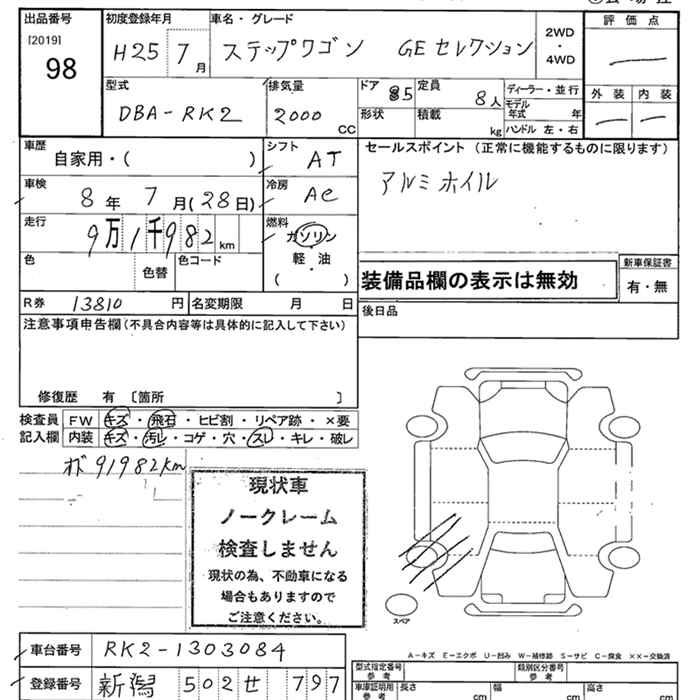 出品番号 初度登録年月 車名・グレード 評価点
[2019] 98 H25 7月 ステップワゴン GEセレクション 2WD・4WD
型式 排気量 ドア 85 定員 8人 ディーラー・並行 外装 内装
DBA-RK2 2000 CC 形状 積載 kg モデル年式 年 ハンドル 左・右
車歴 自家用・( ) シフト AT セールスポイント(正常に機能するものに限ります)
車検 8年 7月(28日) 冷房 AC アルミホイル
走行 9万1千982km 燃料 ガソリン・軽油・( )
色 色替 色コード 装備品欄の表示は無効 新車保証書 有・無
R券 13810円 名変期限 月 日 後日品
注意事項申告欄(不具合内容等は具体的に記入して下さい)
修復歴 有 〔箇所 〕
検査員 FW キズ・飛石・ヒビ割・リペア跡・×要
記入欄 内装 キズ・汚レ・コゲ・穴・スレ・キレ・破レ
オド91982km
現状車
ノークレーム
検査しません
現状の為、不動車になる
場合もありますので
ご注意ください。
スペア
A-キズ E-エクボ U-凹み W-補修跡 S-サビ C-腐食 ××-交換済
車台番号 RK2-1303084
型式指定番号 参考 類別区分番号 参考
登録番号 新潟 502 せ 797
車庫証明用 参考 長さ cm 幅 cm 高さ cm